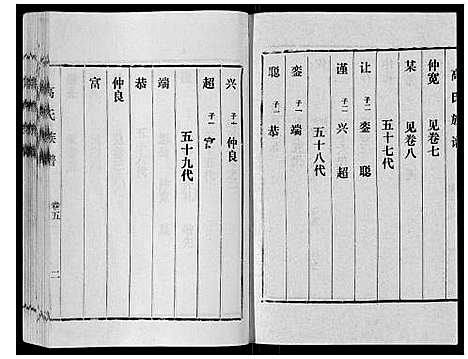 高氏族谱
仲宽 见卷七
某 见卷八
五十七代
让 子二 銮 聪
谨 子二 兴 超
五十八代
銮 子一 端
聪 子一 恭
兴 子一 仲良
超 子一 富
五十九代
端
恭
仲良
富
高氏族谱
卷五
二